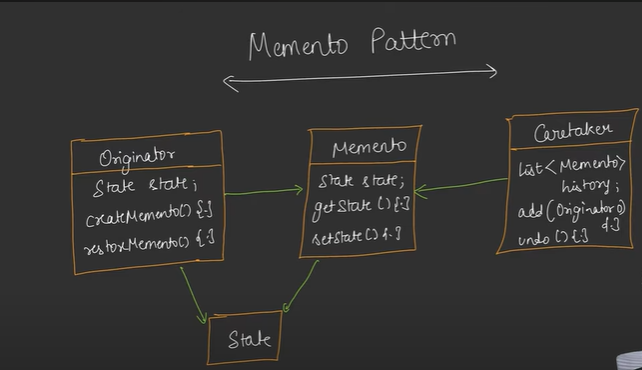 Memento Pattern
Originator
State state;
createMemento() {:}
restoreMemento() {:}
Memento
State state;
getState () {:}
setState () {:}
Caretaker
List<Memento>
history;
add(Originator o)
{:}
undo () {:}
State